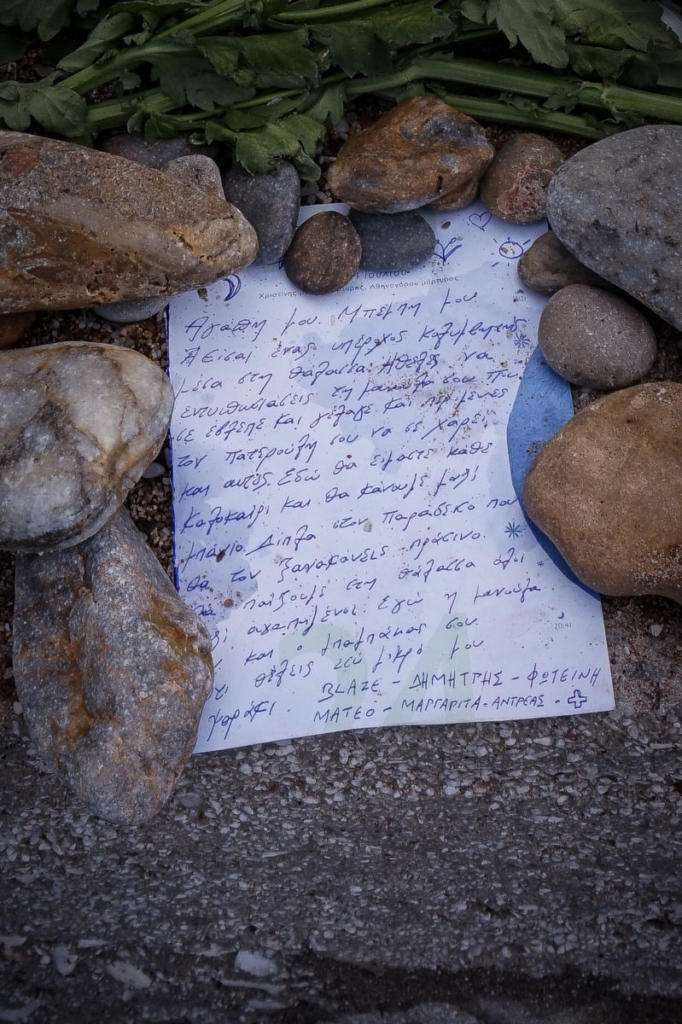 Ιουλίου
Χριστίνης Αθηνογένου μάρτυρος
Αγάπη μου. Μπέμπη μου.
Είσαι ένας υπέροχος κολυμβητής
μέσα στη θάλασσα. Ήθελες να
εντυπωσιάσεις τη μανούλα σου που
σε έβλεπε και γέλαγε και περίμενες
τον πατερούλη σου να σε χαρεί
και αυτός. Εδώ θα είμαστε κάθε
καλοκαίρι και θα κάνουμε μαζί
μπάνιο. Δίπλα στον παράδεισο που
θα τον ξανακάνεις πράσινο.
παίξουμε στη θάλασσα όλοι
αγαπημένοι. Εγώ η μανούλα
και ο μπαμπάκας σου.
θέλεις εσύ μικρό μου
ψαράκι. BLAZE - ΔΗΜΗΤΡΗΣ - ΦΩΤΕΙΝΗ
ΜΑΤΕΟ - ΜΑΡΓΑΡΙΤΑ - ΑΝΤΡΕΑΣ -
20:41
24